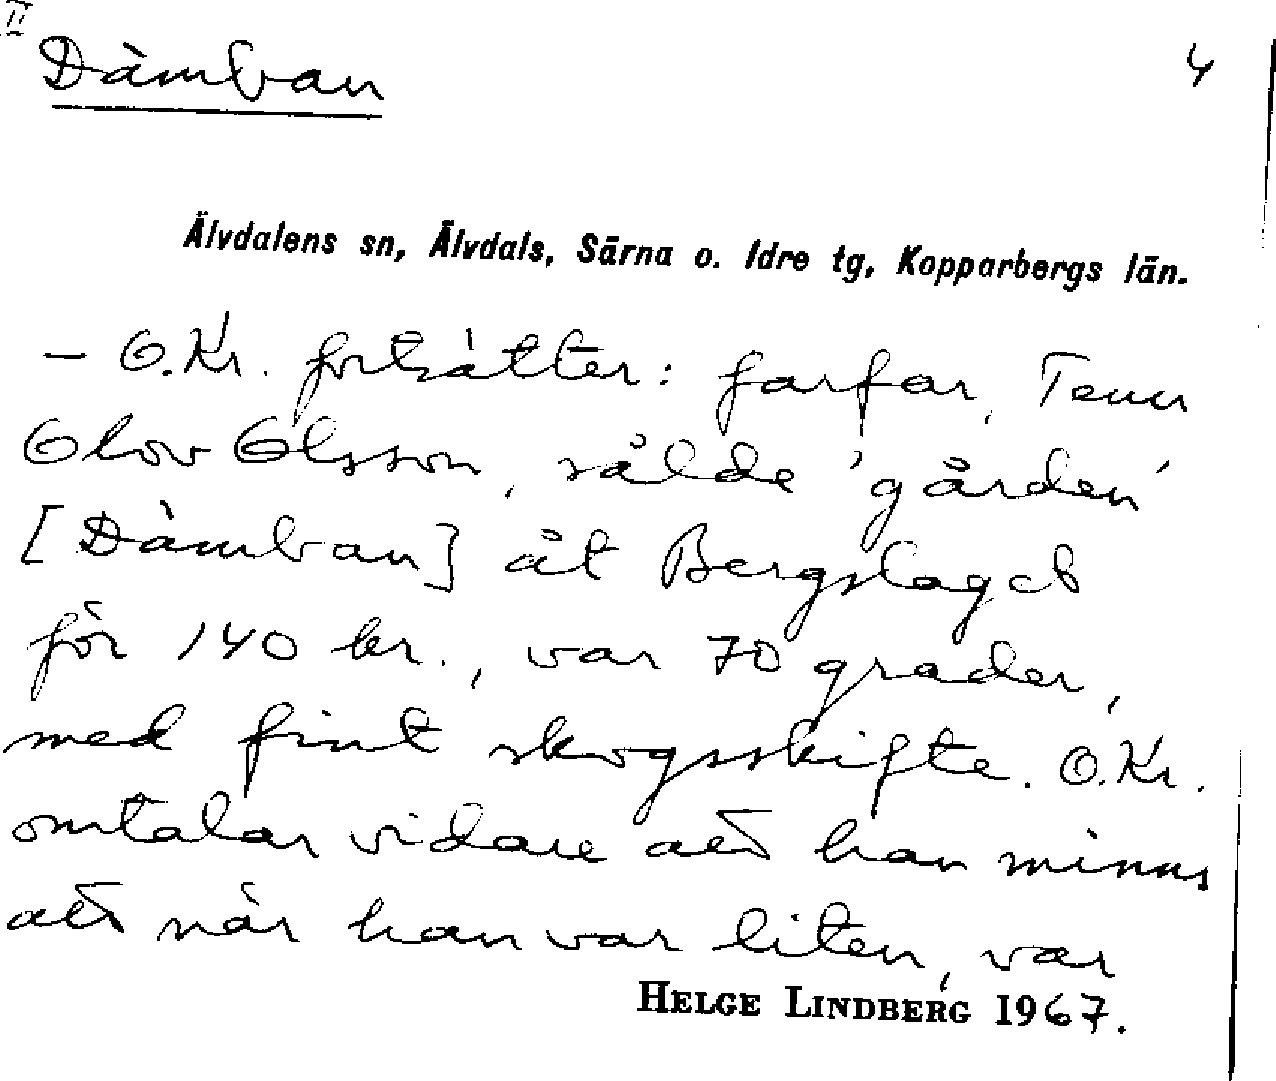 II
Dämban
4
Älvdalens sn, Älvdals, Särna o. Idre tg, Kopparbergs län.
– O.Kr. fortsätter: farfar, Tenn
Olov Olsson, sålde 'gården'
[Dämban] åt Bergslaget
för 140 kr., var 70 grader,
med fint skogsskifte. O.Kr.
omtalar vidare att han minns
att när han var liten, var
HELGE LINDBERG 1967.